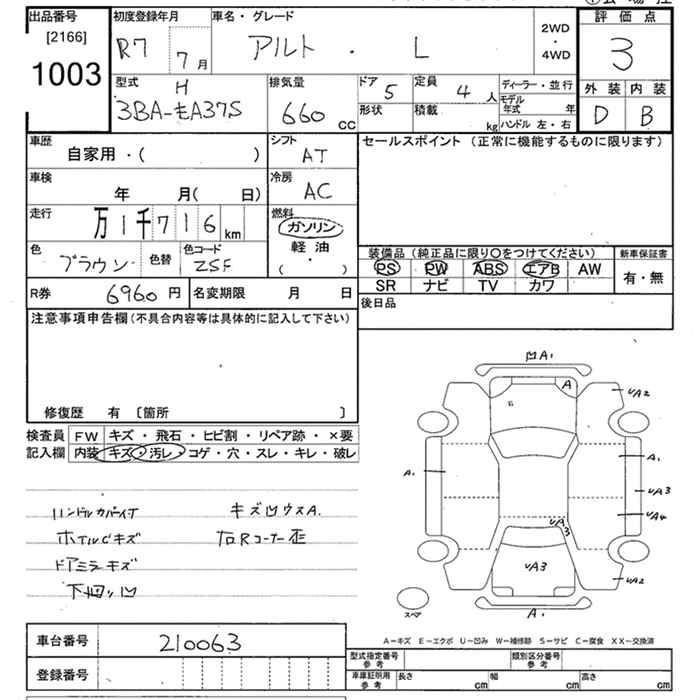 出品番号
[2166]
1003
初度登録年月
R7 7月
車名・グレード
アルト・L
2WD
・
4WD
評価点
3
外装 内装
D B
型式
H
3BA-HA37S
排気量
660 CC
ドア 5
形状
定員 4 人
積載 kg
ディーラー・並行
モデル年式 年
ハンドル 左・右
車歴
自家用・( )
シフト
AT
セールスポイント (正常に機能するものに限ります)
車検
年 月( 日)
冷房
AC
走行
万1千716km
燃料
ガソリン
軽油
( ・ )
色
ブラウン
色替
色コード
ZSF
装備品(純正品に限り○をつけてください)
PS PW ABS エアB AW
SR ナビ TV カワ
新車保証書
有・無
R券 6960円
名変期限 月 日
後日品
注意事項申告欄(不具合内容等は具体的に記入して下さい)
修復歴 有 〔箇所 〕
検査員記入欄
FW キズ・飛石・ヒビ割・リペア跡・×要
内装 キズ・汚レ・コゲ・穴・スレ・キレ・破レ
ハンドルカバー付
キズ凹ウスA.
ホイルCキズ
右Rコーナー歪
ドアミラーキズ
下廻り凹
凹A1
A
UA2
A1
A1
UA3
UA4
UA3
UA3
UA2
A1
スペア
A―キズ E―エクボ U―凹み W―補修跡 S―サビ C―腐食 XX―交換済
車台番号 210063
登録番号
型式指定番号
参考
類別区分番号
参考
車庫証明用
参考
長さ cm
幅 cm
高さ cm